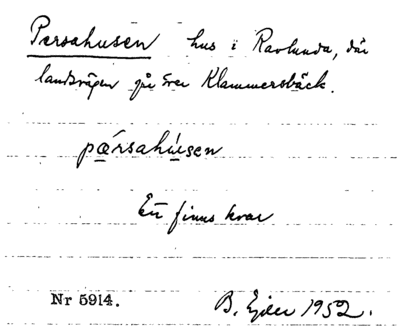 Persahusen hus i Ravlunda, där
landsvägen går över Klammersbäck.
pǽrsahúsen
Ett finns kvar
Nr 5914. B. Ejder 1952.